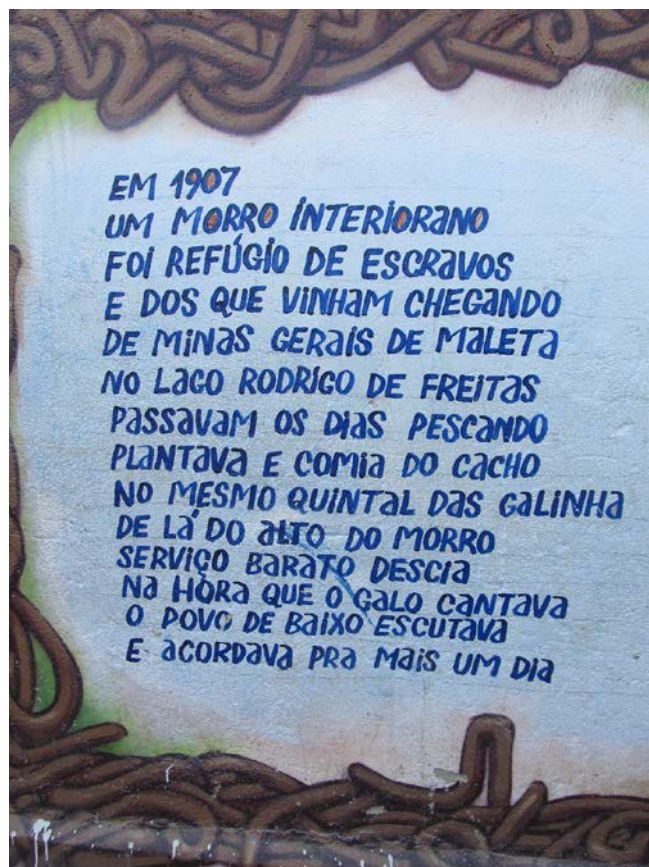 EM 1907
UM MORRO INTERIORANO
FOI REFÚGIO DE ESCRAVOS
E DOS QUE VINHAM CHEGANDO
DE MINAS GERAIS DE MALETA
NO LAGO RODRIGO DE FREITAS
PASSAVAM OS DIAS PESCANDO
PLANTAVA E COMIA DO CACHO
NO MESMO QUINTAL DAS GALINHA
DE LÁ DO ALTO DO MORRO
SERVIÇO BARATO DESCIA
NA HORA QUE O GALO CANTAVA
O POVO DE BAIXO ESCUTAVA
E ACORDAVA PRA MAIS UM DIA